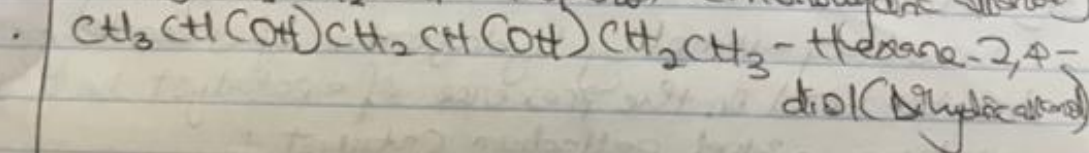 . CH₃CH(OH)CH₂CH(OH)CH₂CH₃ - Hexane-2,4-
diol (Dihydric alkanol)